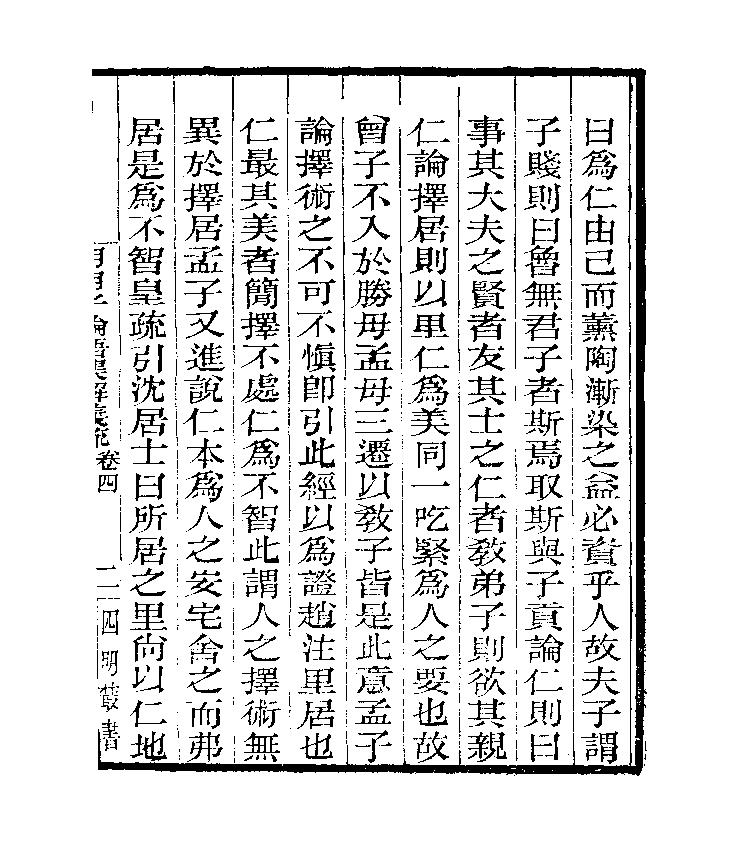 曰爲仁由己而薰陶漸染之益必資乎人故夫子謂
子賤則曰魯無君子者斯焉取斯與子貢論仁則曰
事其大夫之賢者友其士之仁者敎弟子則欲其親
仁論擇居則以里仁爲美同一吃緊爲人之要也故
曾子不入於勝母孟母三遷以敎子皆是此意孟子
論擇術之不可不愼卽引此經以爲證趙注里居也
仁最其美者簡擇不處仁爲不智此謂人之擇術無
異於擇居孟子又進說仁本爲人之安宅舍之而弗
居是爲不智皇疏引沈居士曰所居之里尙以仁地
論語集解義疏卷四 二 四明叢書